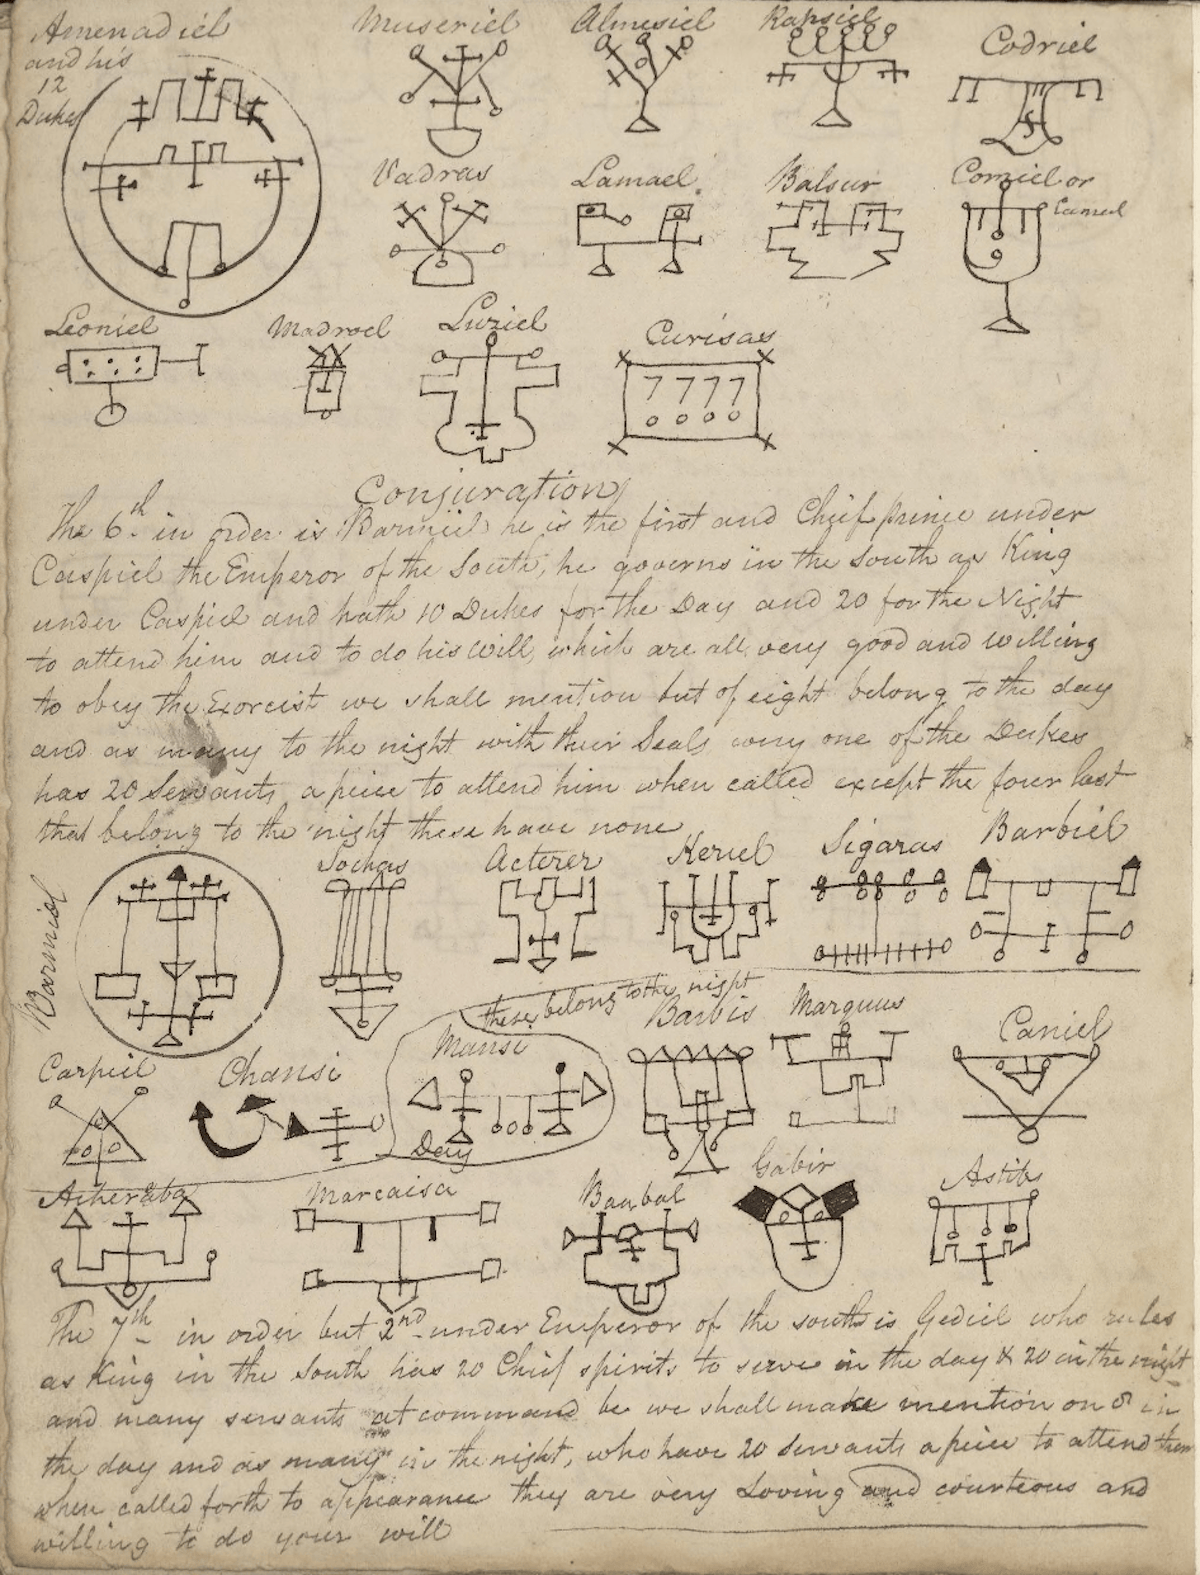 Amenadiel
and his
12
Dukes
Museriel
Almesiel
Rapsiel
Codriel
Vadras
Lamael.
Balsur
Comziel or
Camael
Leoniel
Madroel
Luziel
Curisas
7777
Conjuration
The 6th in order is Barmiel he is the first and Chief prince under
Caspiel the Emperor of the South, he governs in the south as King
under Caspiel and hath 10 Dukes for the Day and 20 for the Night
to attend him and to do his will, which are all very good and willing
to obey the Exorcist we shall mention but of eight belong to the day
and as many to the night with their Seals every one of the Dukes
has 20 Servants a piece to attend him when called except the four last
that belong to the night these have none
Barmiel
Sochas
Acterer
Keriel
Sigaras
Barbiel
these belong to the night
Carpiel
Chansi
Mansi
Day
Barbis
Marquus
Caniel
Acheraba
Marcaisa
Baabal
Gabir
Astib
The 7th in order but 2nd under Emperor of the south is Gediel who rules
as King in the South has 20 Chief spirits to serve in the day & 20 in the night
and many servants at command be we shall make mention on 8 in
the day and as many in the night, who have 20 servants a piece to attend them
when called forth to appearance they are very Loving and courteous and
willing to do your will